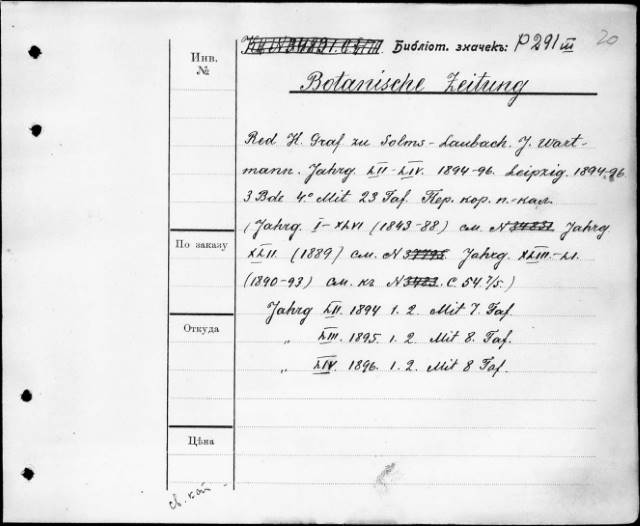 Библіот. значекъ: P 291 III 20
Инв. №
Botanische Zeitung
Red H. Graf zu Solms-Laubach. J. Wort-
mann. Jahrg. LII-LIV. 1894-96. Leipzig. 1894-96
3 Bde 4.° Mit 23 Taf. Пер. кор. п.-кал.
(Jahrg. I-XLVI (1843-88) см. N 34851 Jahrg.
XLII. (1889) см. N 37795 Jahrg. XLIII.-LI.
(1890-93) см. къ N 3483. C. 54 7/5.)
Jahrg LII. 1894 1. 2. Mit 7. Taf.
" LIII. 1895. 1. 2. Mit 8. Taf.
" LIV. 1896. 1. 2. Mit 8 Taf.
По заказу
Откуда
Цѣна